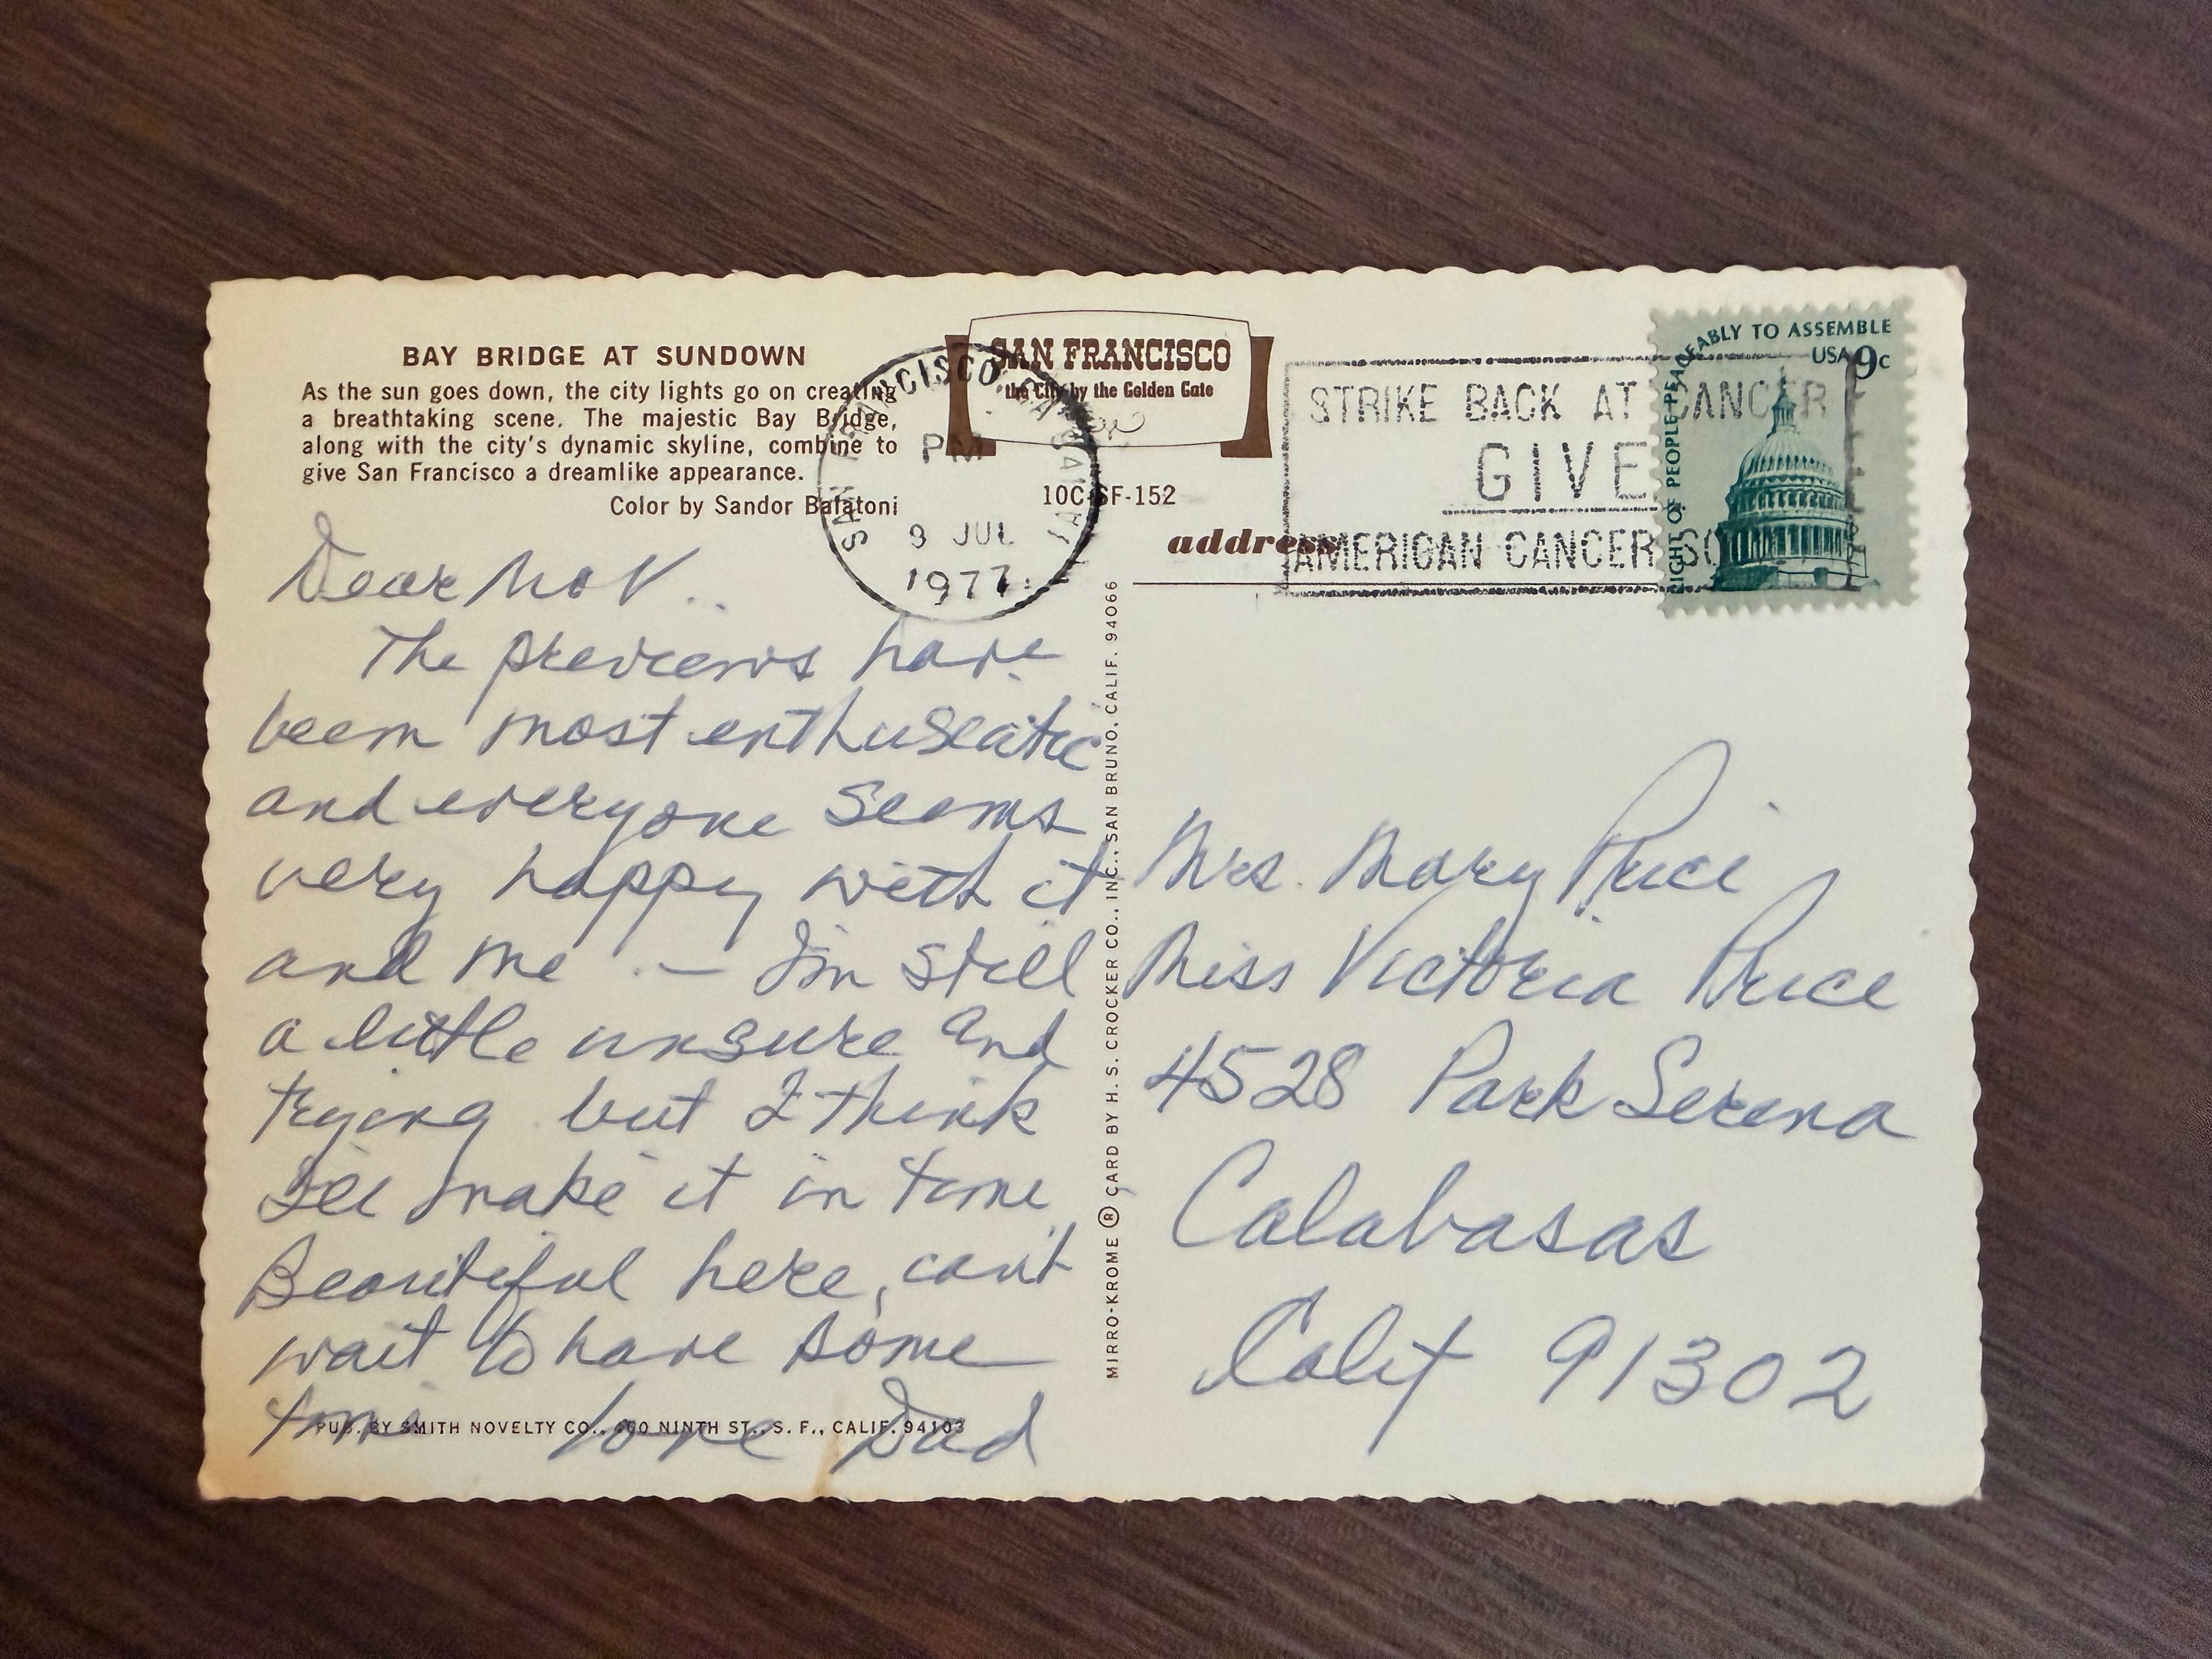 BAY BRIDGE AT SUNDOWN
As the sun goes down, the city lights go on creating
a breathtaking scene. The majestic Bay Bridge,
along with the city's dynamic skyline, combine to
give San Francisco a dreamlike appearance.
Color by Sandor Balatoni
SAN FRANCISCO
the City by the Golden Gate
10C SF-152
SAN FRANCISCO, CA
PM
9 JUL
1977
STRIKE BACK AT CANCER
GIVE
AMERICAN CANCER SO
RIGHT OF PEOPLE PEACEABLY TO ASSEMBLE
USA 9c
address
Dear M&V..
The previews have
been most enthusiatic
and everyone seems
very happy with it
and me — I'm still
a little unsure and
trying but I think
I'll make it in time
Beautiful here, can't
wait to have some
time love Dad
PUB. BY SMITH NOVELTY CO., 460 NINTH ST., S. F., CALIF. 94103
MIRRO-KROME ® CARD BY H. S. CROCKER CO., INC., SAN BRUNO, CALIF. 94066
Mrs. Mary Price
Miss Victoria Price
4528 Park Serena
Calabasas
Calif 91302